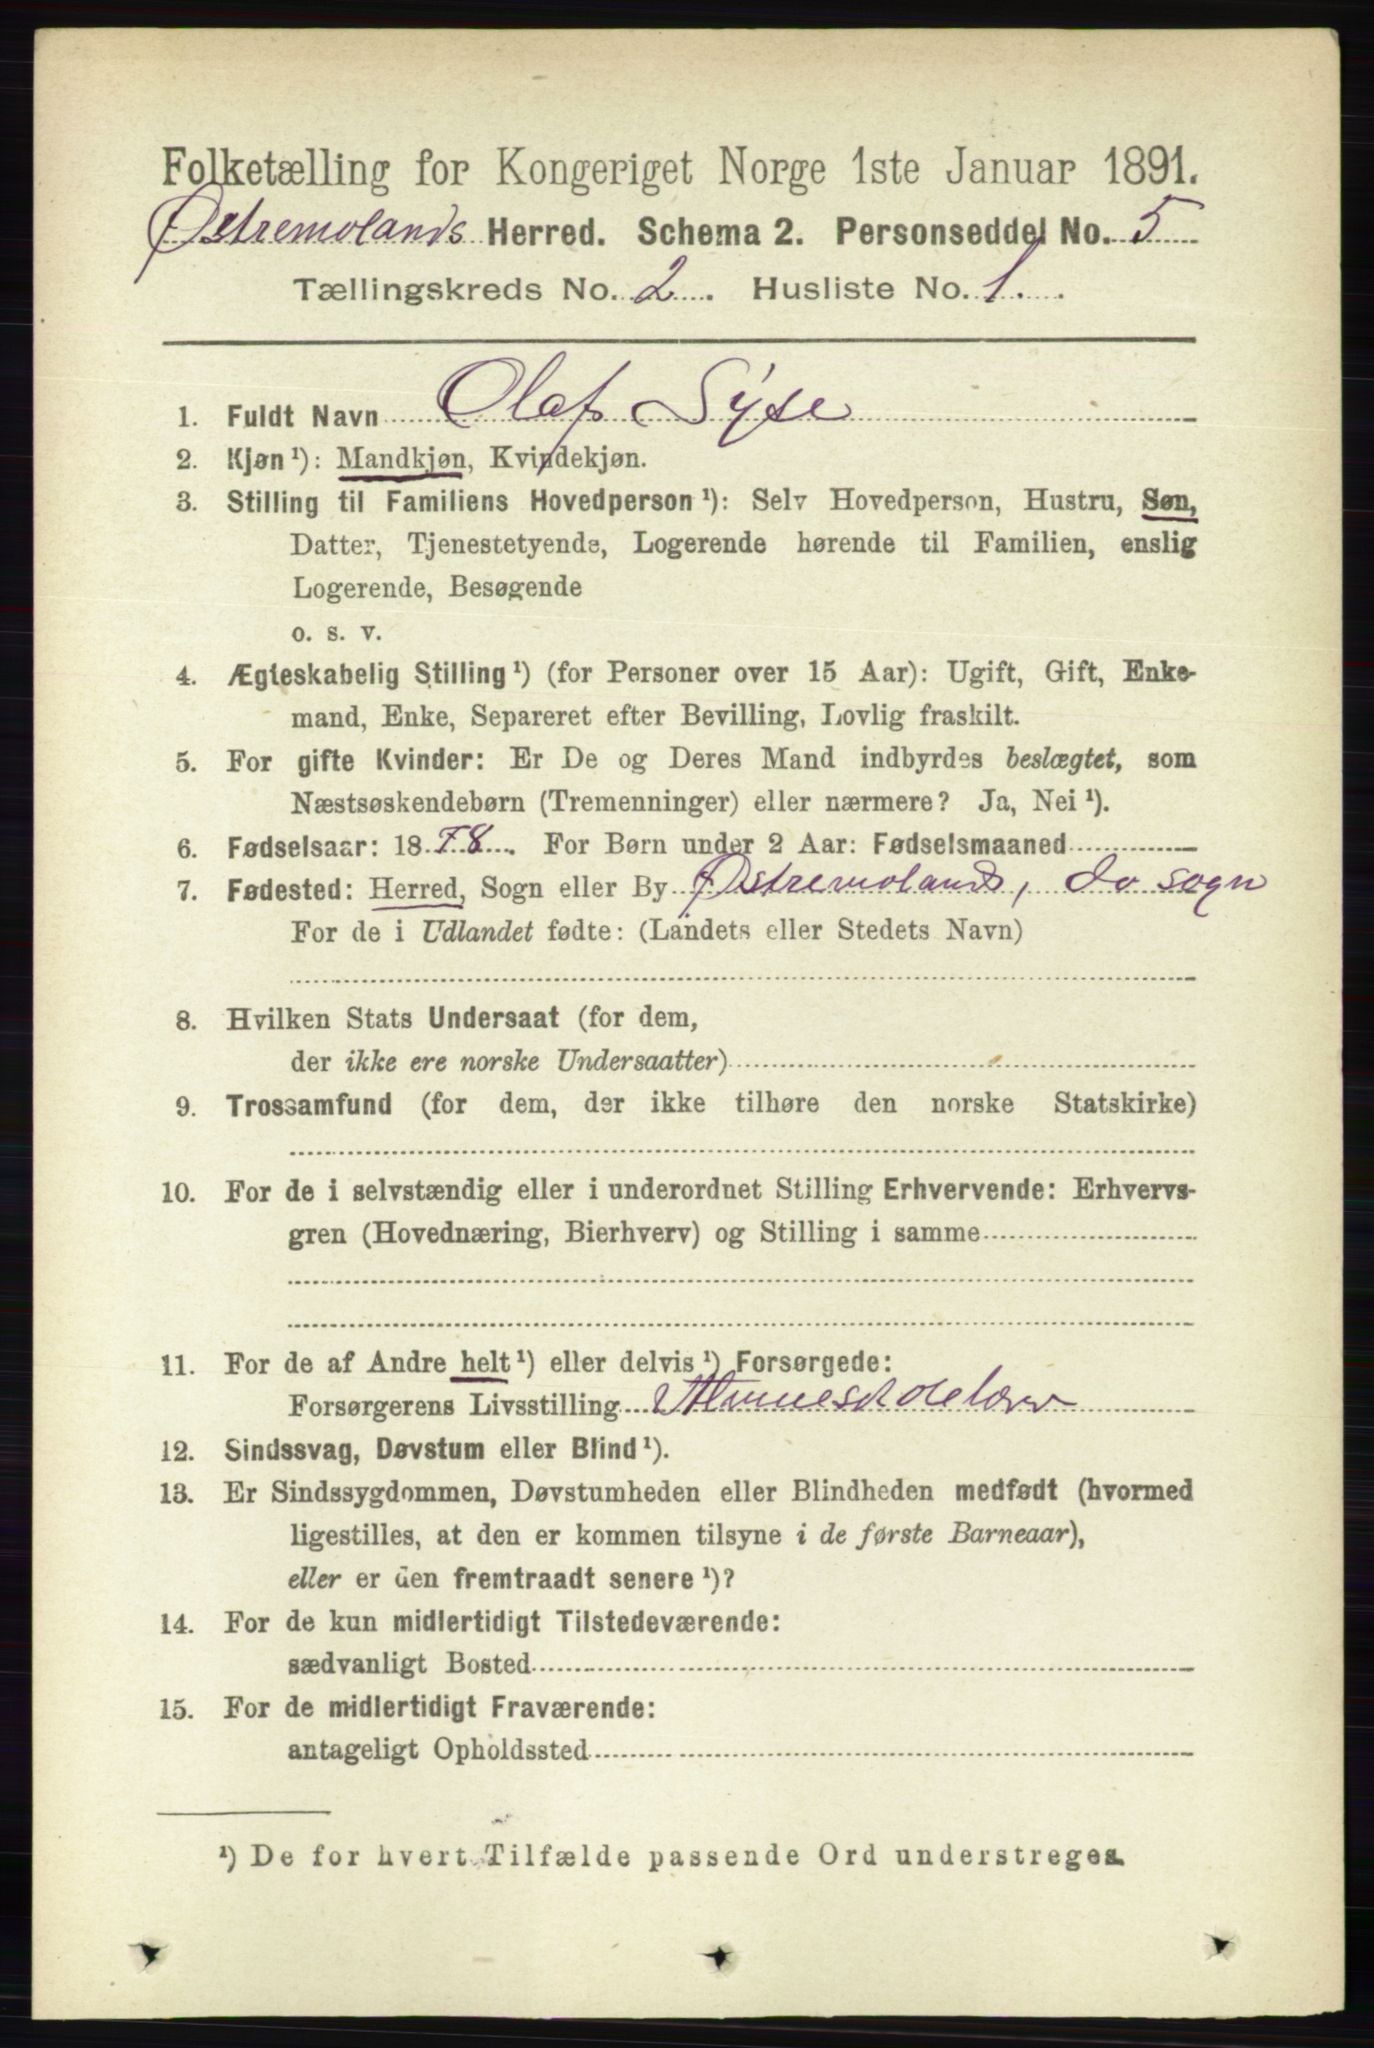 Folketælling for Kongeriget Norge 1ste Januar 1891.
Østremolands Herred. Schema 2. Personseddel No. 5
Tællingskreds No. 2. Husliste No. 1.
1. Fuldt Navn Olaf Syse
2. Kjøn ¹): Mandkjøn, Kvindekjøn.
3. Stilling til Familiens Hovedperson ¹): Selv Hovedperson, Hustru, Søn,
Datter, Tjenestetyende, Logerende hørende til Familien, enslig
Logerende, Besøgende
o. s. v.
4. Ægteskabelig Stilling ¹) (for Personer over 15 Aar): Ugift, Gift, Enke-
mand, Enke, Separeret efter Bevilling, Lovlig fraskilt.
5. For gifte Kvinder: Er De og Deres Mand indbyrdes beslægtet, som
Næstsøskendebørn (Tremenninger) eller nærmere? Ja, Nei ¹).
6. Fødselsaar: 1878. For Børn under 2 Aar: Fødselsmaaned
7. Fødested: Herred, Sogn eller By Østremolands, do sogn
For de i Udlandet fødte: (Landets eller Stedets Navn)
8. Hvilken Stats Undersaat (for dem,
der ikke ere norske Undersaatter)
9. Trossamfund (for dem, der ikke tilhøre den norske Statskirke)
10. For de i selvstændig eller i underordnet Stilling Erhvervende: Erhvervs-
gren (Hovednæring, Bierhverv) og Stilling i samme
11. For de af Andre helt ¹) eller delvis ¹) Forsørgede:
Forsørgerens Livsstilling
12. Sindssvag, Døvstum eller Blind ¹).
13. Er Sindssygdommen, Døvstumheden eller Blindheden medfødt (hvormed
ligestilles, at den er kommen tilsyne i de første Barneaar),
eller er den fremtraadt senere ¹)?
14. For de kun midlertidigt Tilstedeværende:
sædvanligt Bosted
15. For de midlertidigt Fraværende:
antageligt Opholdssted
¹) De for hvert Tilfælde passende Ord understreges.